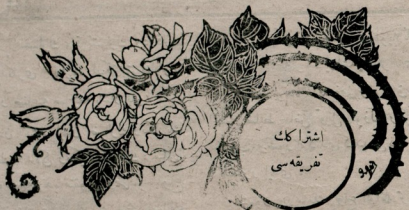 اشتراكك
تفريقه سى